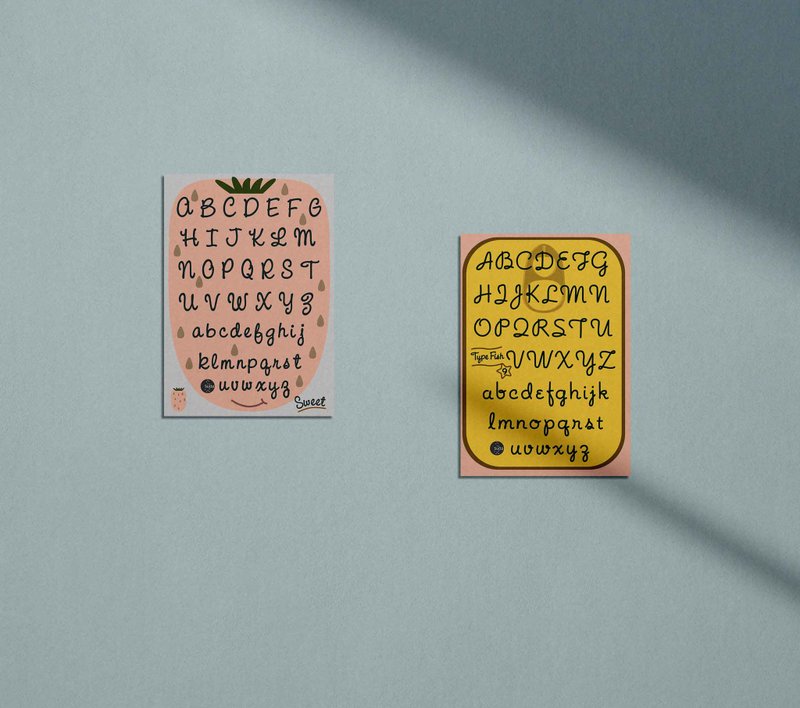 A B C D E F G
H I J K L M
N O P Q R S T
U V W X Y Z
abcdefghij
klmnpqrst
uvwxyz
Sweet
ABCDEFG
HIJKLMN
OPQRSTU
Type Fish
VWXYZ
abcdefghijk
lmnopqrst
uvwxyz